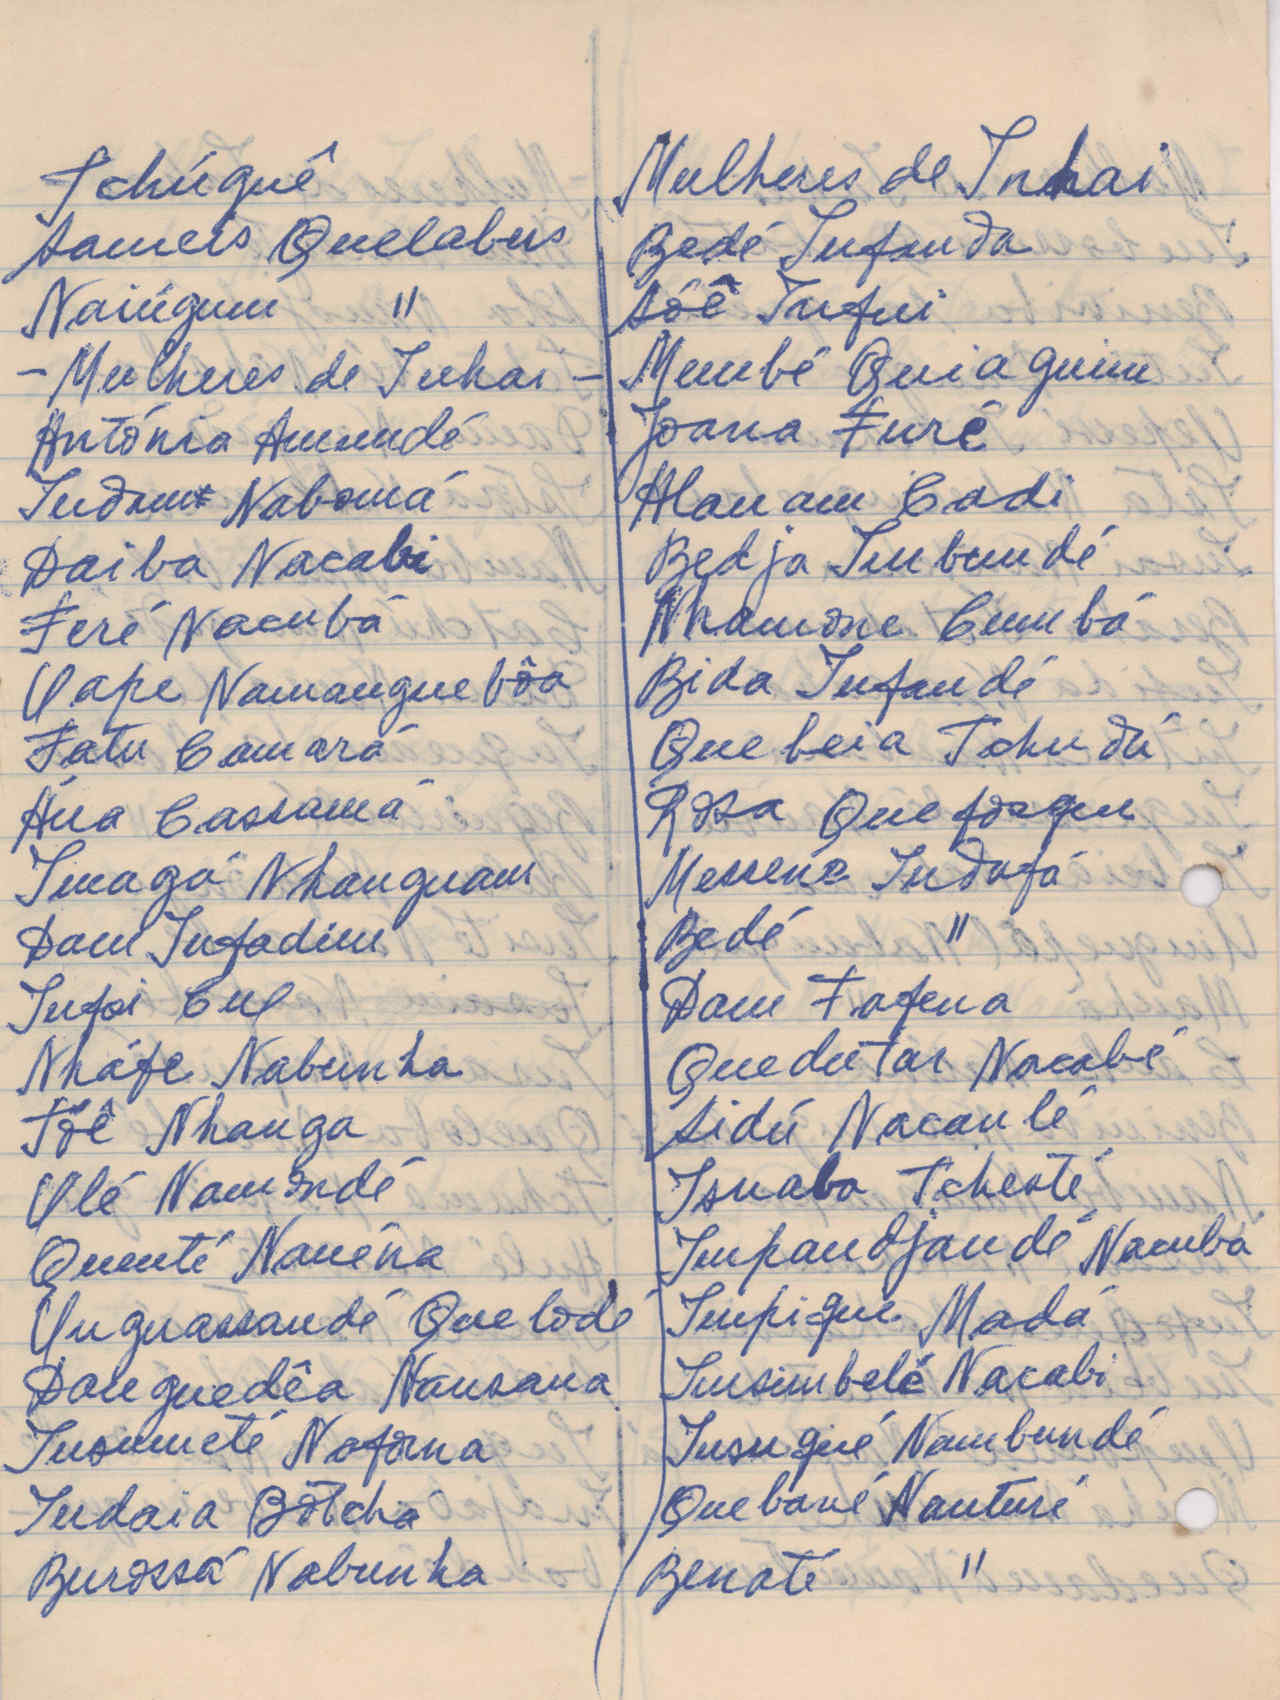 Tchúguê
Samcis Quelabus
Naiúgum "
- Mulheres de Inhai -
António Amundé
Indom Nabomá
Daiba Nacabi
Feré Nacubá
Uape Namanguebôa
Fatu Camará
Ana Cassamá
Inagá Nhanguam
Dam Infadim
Infoi Cul
Nháfe Nabunha
Tôê Nhanga
Ulé Namondé
Quinté Nanéna
Unguassandé Quelodé
Danguedêa Nansana
Insumeté Nafona
Indaia Bôtchá
Burossá Nabunha
Mulheres de Inhai
Bedé Infanda
Sóê Infui
Membé Quiaguim
Joana Furé
Alanam Cadi
Bedja Imbundé
Nhamone Cumbá
Bida Infandé
Quebeia Tchudú
Rosa Quefoague
Messené Indafá
Bedé "
Dam Fafena
Quedutar Nacabé
Sidú Nacanlé
Isnaba Tchesté
Impandjandé Nacubá
Impigue Madá
Insimbelé Nacabi
Insugué Nambundé
Quebané Nanturé
Benaté "